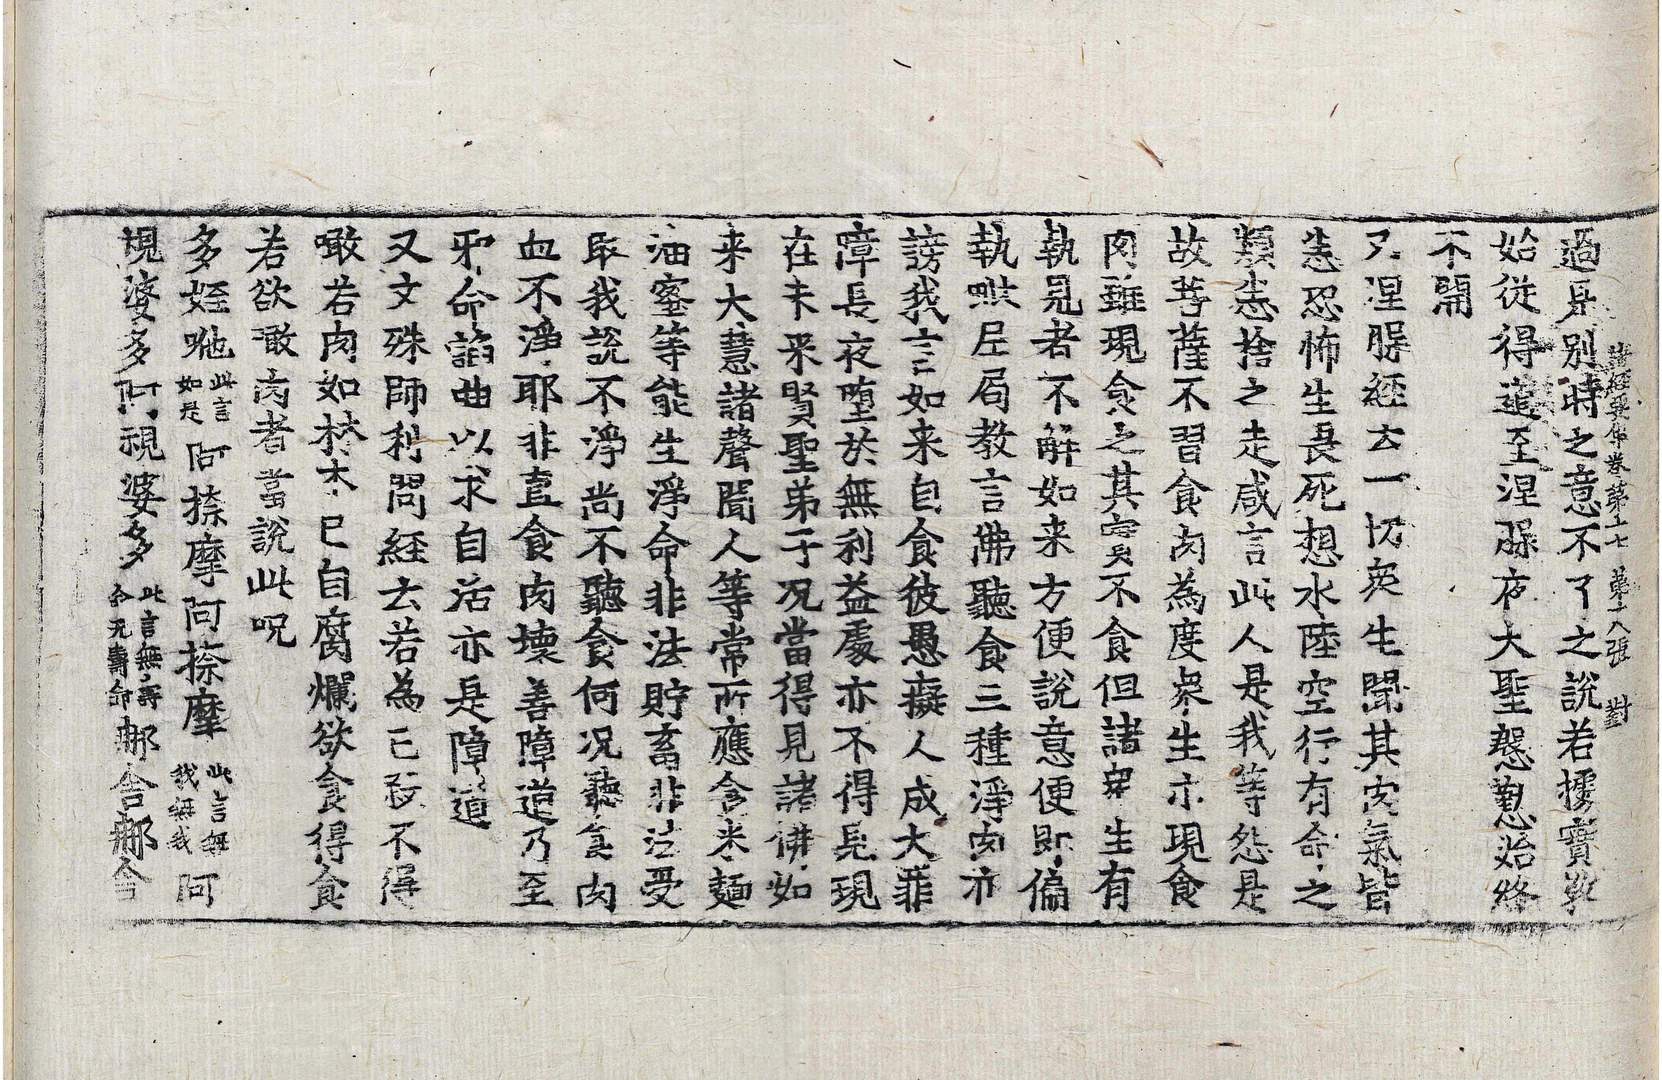 諸經要集卷第十七 第十八張 對
過是別時之意不了之說若據實教
始從得道至涅槃夜大聖慇懃始終
不開
又涅槃經云一切衆生聞其肉氣皆
悉恐怖生畏死想水陸空行有命之
類悉捨之走咸言此人是我等怨是
故菩薩不習食肉為度衆生亦現食
肉雖現食之其實不食但諸衆生有
執見者不解如来方便說意便即偏
執毗尼局教言佛聽食三種淨肉亦
謗我言如来自食彼愚癡人成大罪
障長夜墮於無利益處亦不得見現
在未来賢聖弟子况當得見諸佛如
来大慧諸聲聞人等常所應食米麵
油蜜等能生淨命非法貯畜非法受
取我說不淨尚不聽食何况聽食肉
血不淨耶非直食肉壞善障道乃至
邪命諂曲以求自活亦是障道
又文殊師利問經云若為己殺不得
噉若肉如林木已自腐爛欲食得食
若欲噉肉者當說此呪
多姪咃此言如是阿捺摩阿捺摩此言無我無我阿
視婆多阿視婆多此言無壽命无壽命那舍那舍